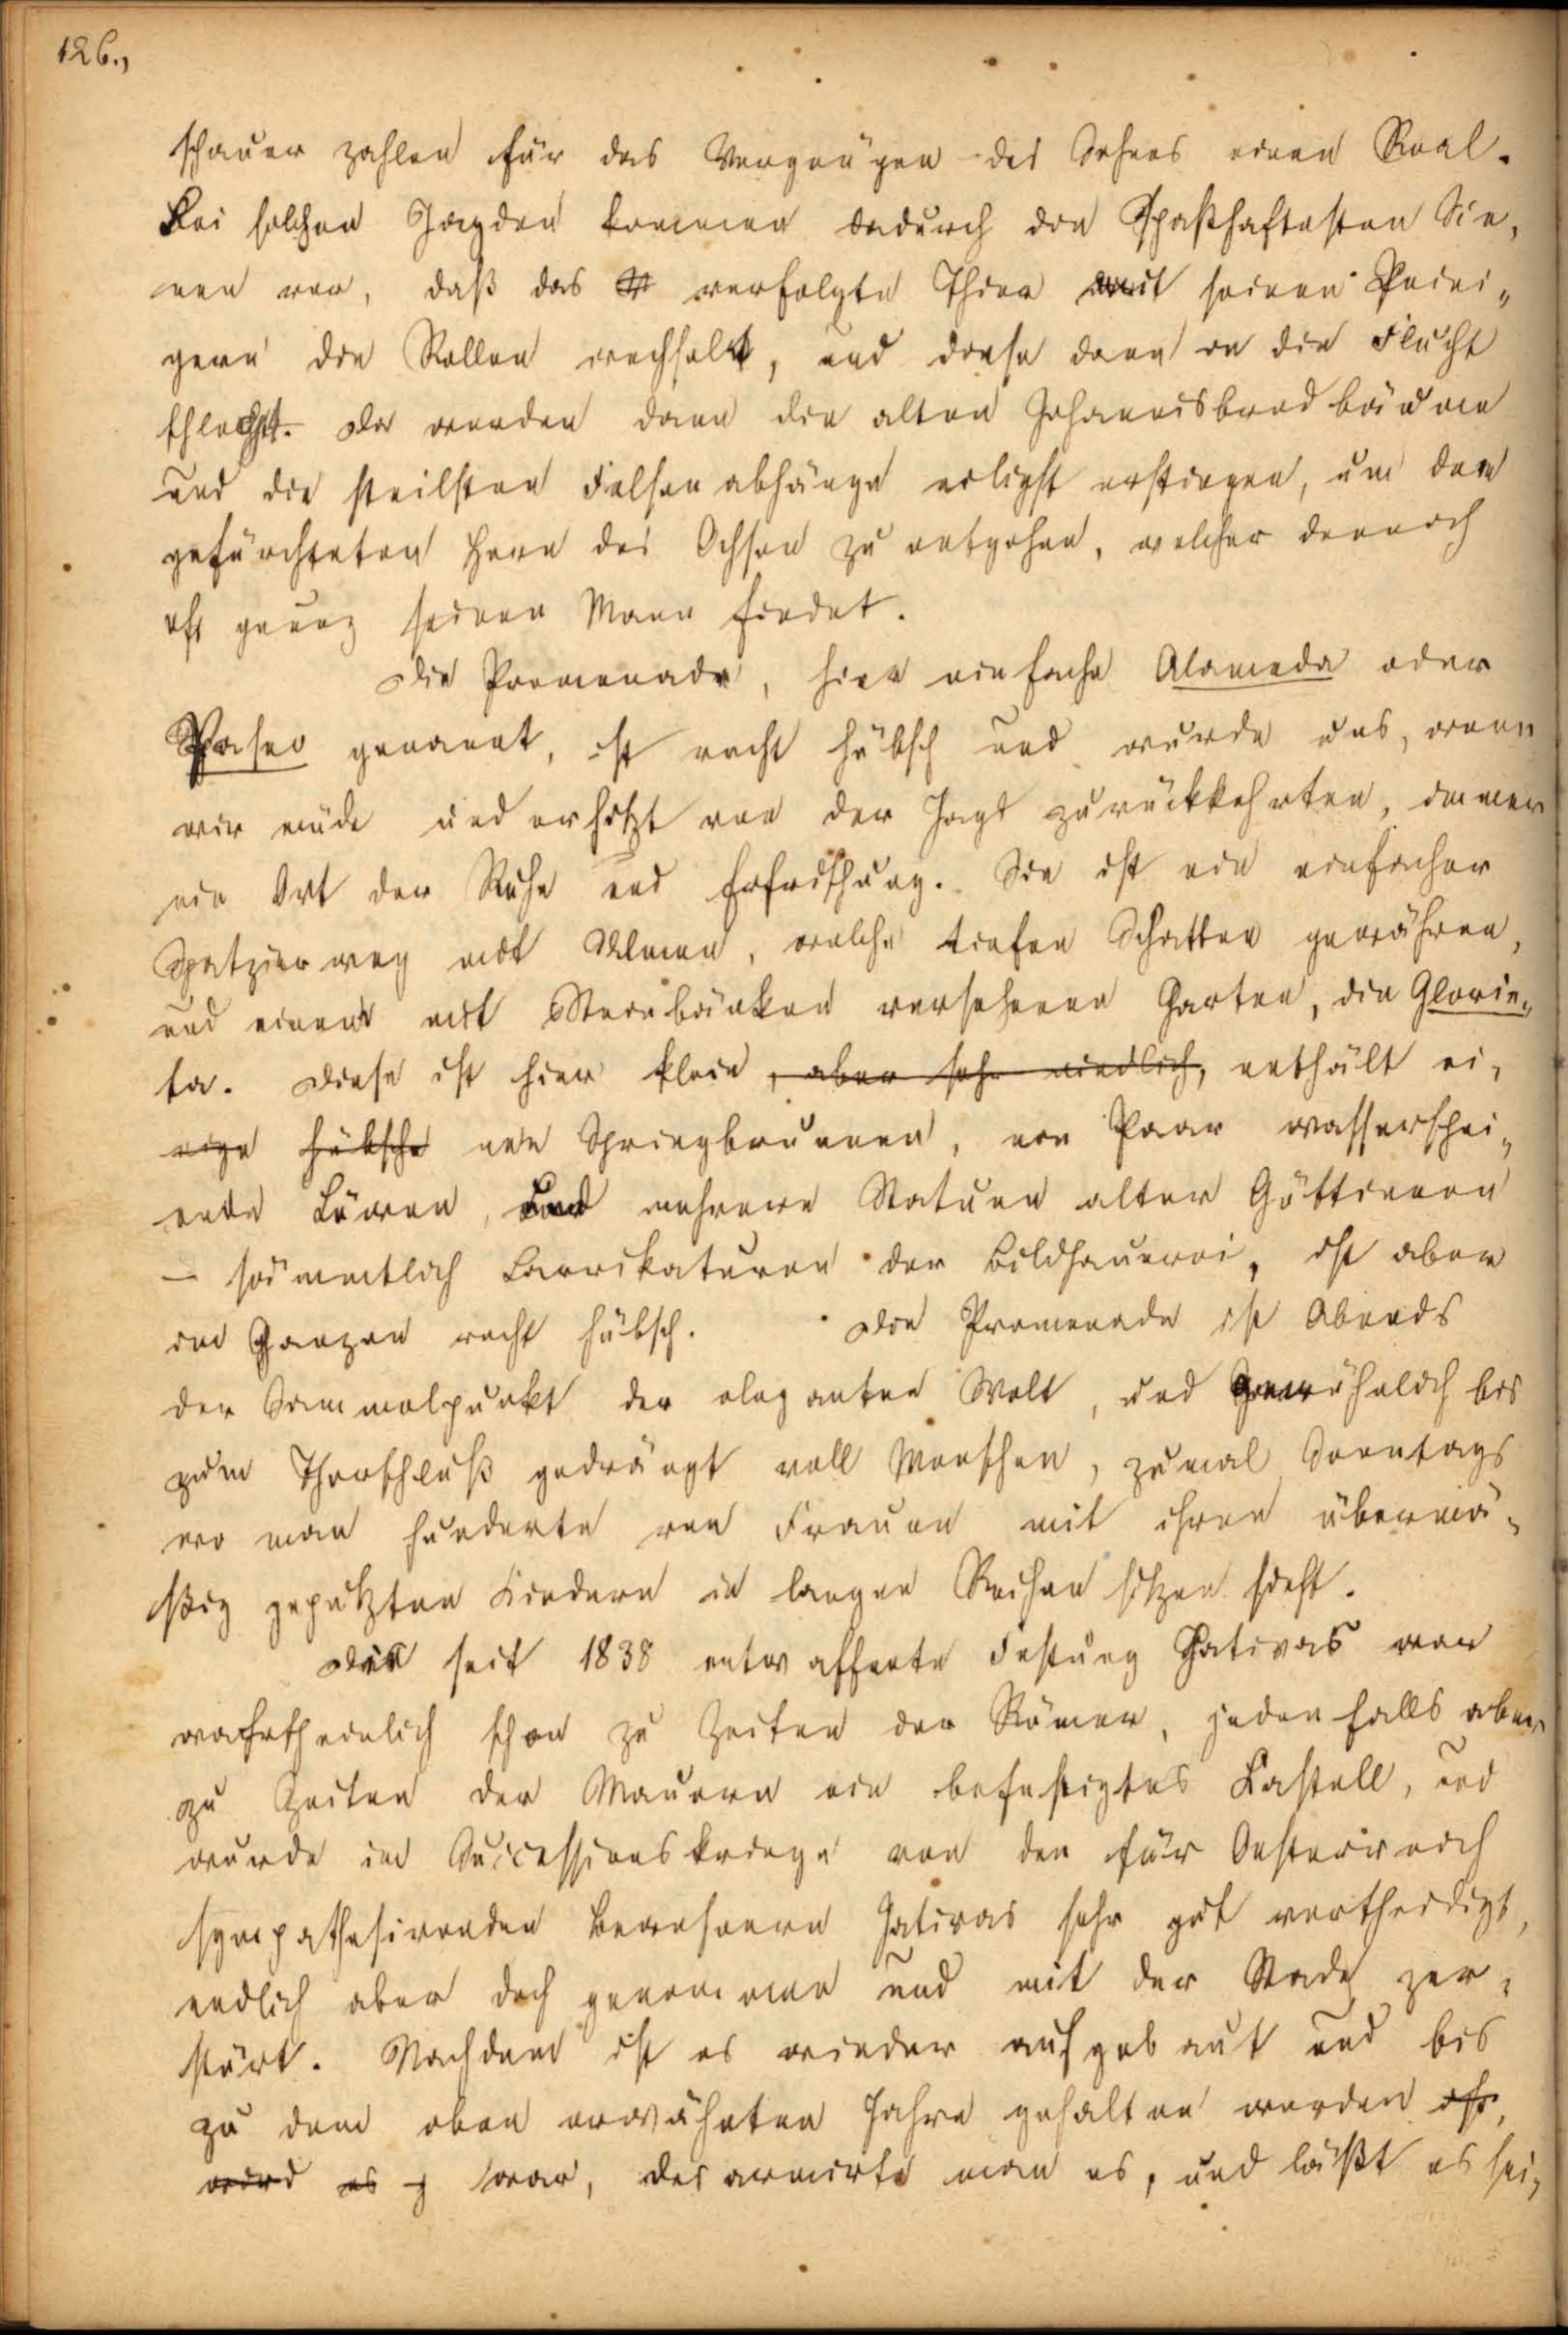 126.,
schauer zahlen für das Vergnügen des Sehens einen Real.
Bei solchen Jagden kommen dadurch die spaßhaftesten Sce-
nen vor, daß das verfolgte Thier mit seinen Peini-
gern die Rollen wechselt, und diese dann in die Flucht
schlägt. Da werden dann die alten Johannisbrodbäume
und die steilsten Felsenabhänge eiligst erstiegen, um den
gefürchteten Horn des Ochsen zu entgehen, welcher dennoch
oft genug seinen Mann findet.
Die Promenade, hier einfache Alameda oder
Paseo genannt, ist recht hübsch und wurde uns, wenn
wir müde und erhitzt von der Jagd zurückkehrten, immer
ein Ort der Ruhe und Erfrischung. Sie ist ein einfacher
Spatzierweg mit Ulmen, welche tiefen Schatten gewähren,
und einem mit Steinbänken versehenen Garten, die Glorie-
ta. Diese ist hier klein, aber sehr niedlich, enthält ei-
nige hübsche nen Springbrunnen, ein Paar wasserspei-
ende Löwen, und mehrere Statuen alter Göttinnen
– sämmtlich Carrikaturen der Bildhauerei, ist aber
im Ganzen recht hübsch. Die Promenade ist Abends
der Sammelpunkt der eleganten Welt, und gewöhnlich bis
zum Thorschluß gedrängt voll Menschen, zumal Sonntags
wo man hunderte von Frauen mit ihren übermä-
ßig geputzten Kindern in langen Reihen sitzen sieht.
Die seit 1838 entwaffnete Festung Jativas war
wahrscheinlich schon zu Zeiten der Römer, jedenfalls aber
zu Zeiten der Mauren ein befestigtes Castell, und
wurde im Successionskriege von den für Oesterreich
sympathesirenden Bewohnern Jativas sehr gut vertheidigt,
endlich aber doch genommen und mit der Stadt zer-
stört. Nachdem ist es wieder aufgebaut und bis
zu dem oben erwähnten Jahre gehalten worden ist,
wird es war, desarmirte man es, und läßt es sei-